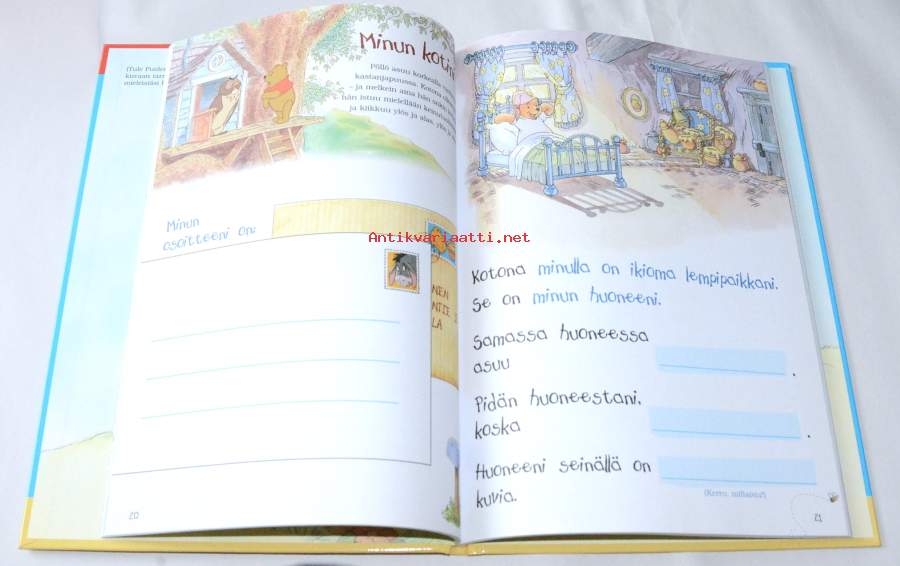 (Tule Puden
kuvaan
Minun koti
Pöllö asuu korkealla
kastanjapuussa. Kotona
- ja melkein aina hän
hän istuu mielellään
ja kiikkuu ylös ja alas,
Minun
osoitteeni on:
NEN
NTIE
LA
20
Antikvariaatti.net
Kotona minulla on ikioma lempipaikkani.
Se on minun huoneeni.
Samassa huoneessa
asuu
.
Pidän huoneestani,
koska
.
Huoneeni seinällä on
kuvia.
(Kerro, millaisia!)
21